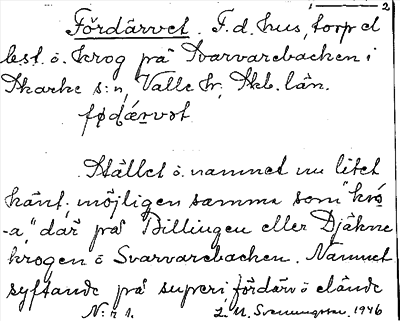 1 — 2
Fördärvet. F.d. hus, torp el
last. o. krog på Svarvarebacken i
Skarke s:n, Valle hr, Skb. län.
fǫdǽrvət
Stället o. namnet nu litet
känt; möjligen samma som "kró
-a" där på Billingen eller Djäkne
krogen o Svarvarebacken. Namnet
syftande på superi fördärv o elände
N:r 1. L. M. Svenungsson. 1946